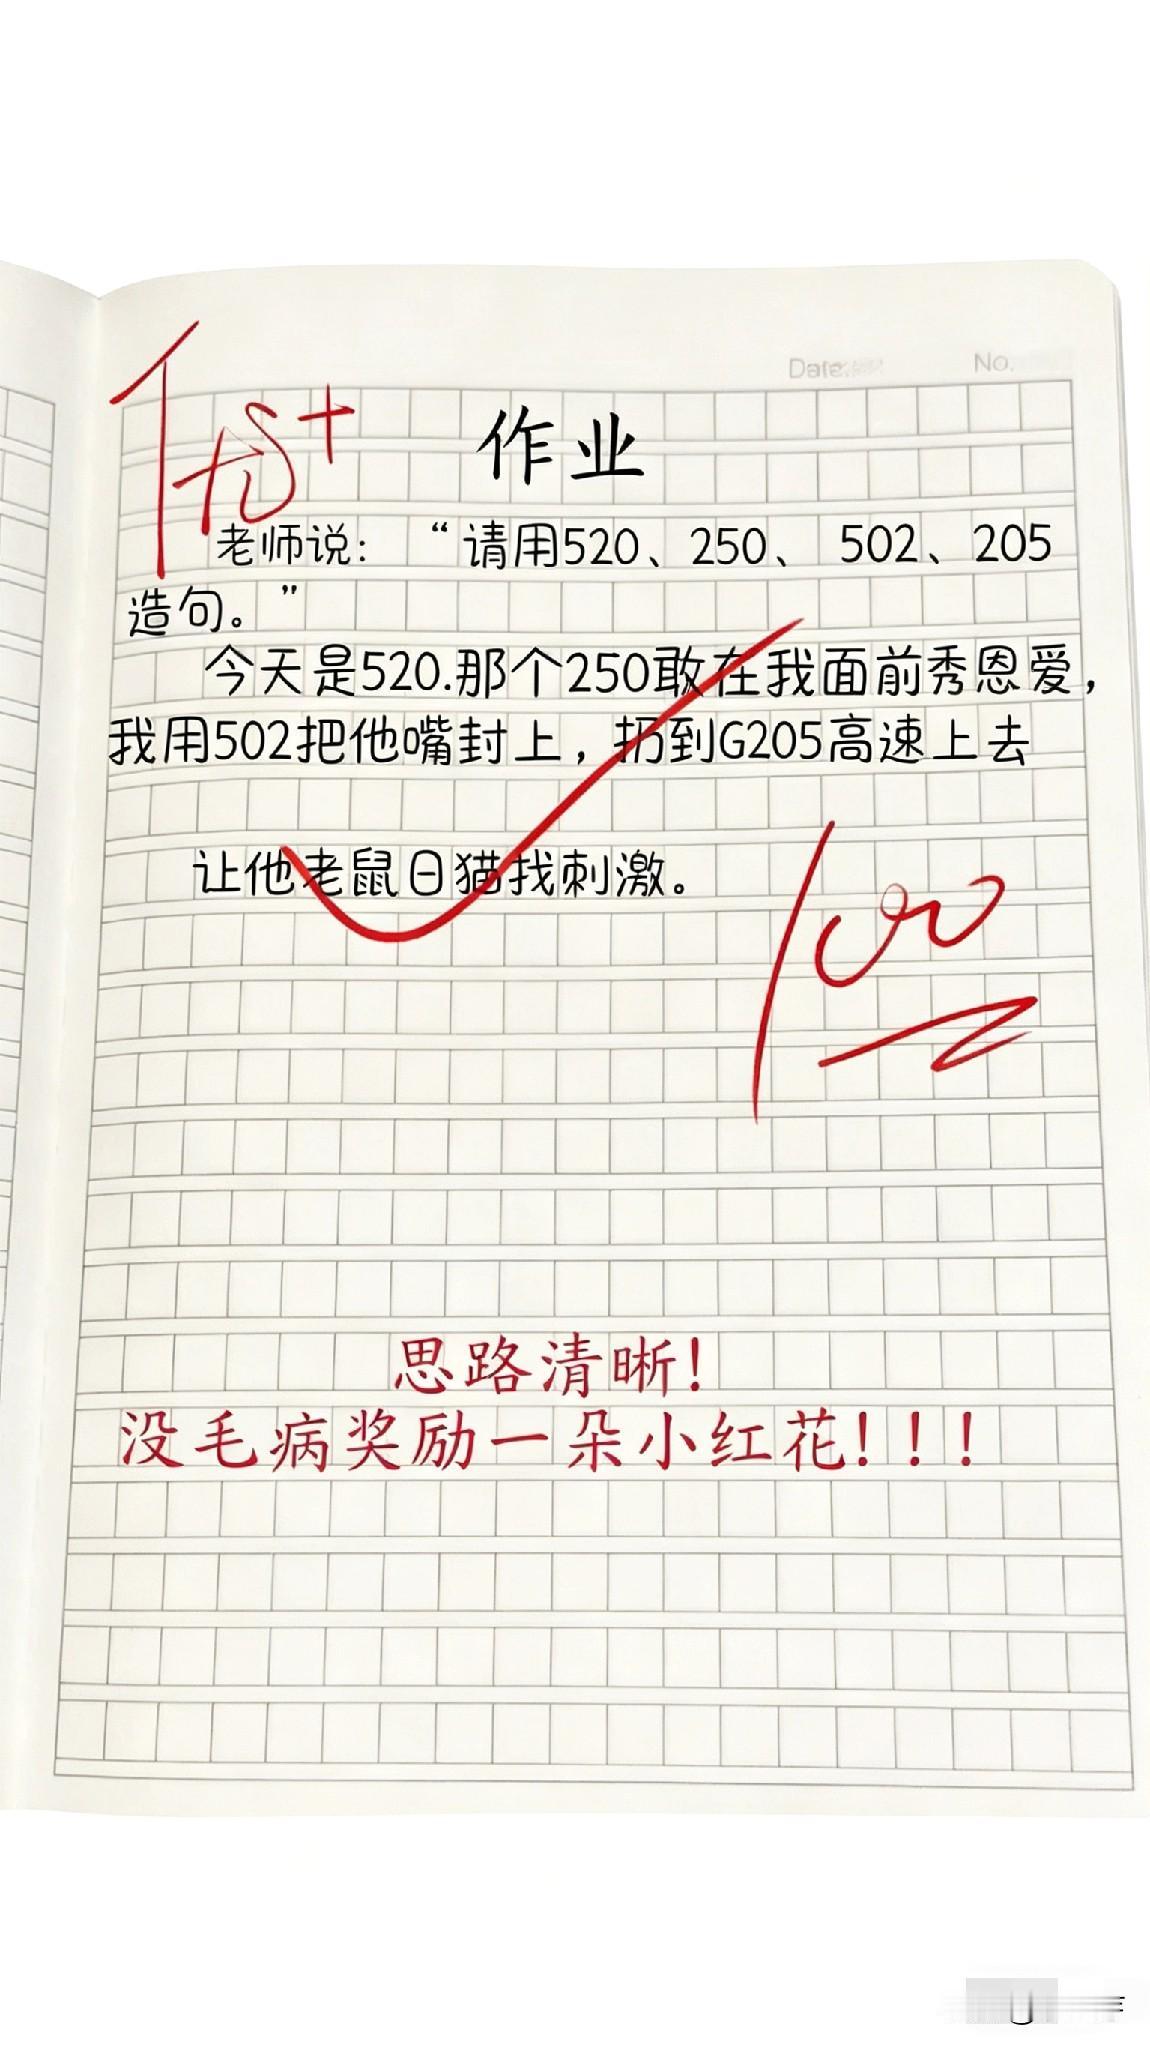 Date
No.
作业
老师说：“请用520、250、502、205
造句。”
今天是520.那个250敢在我面前秀恩爱，
我用502把他嘴封上，扔到G205高速上去
让他老鼠日猫找刺激。
100
思路清晰！
没毛病奖励一朵小红花！！！